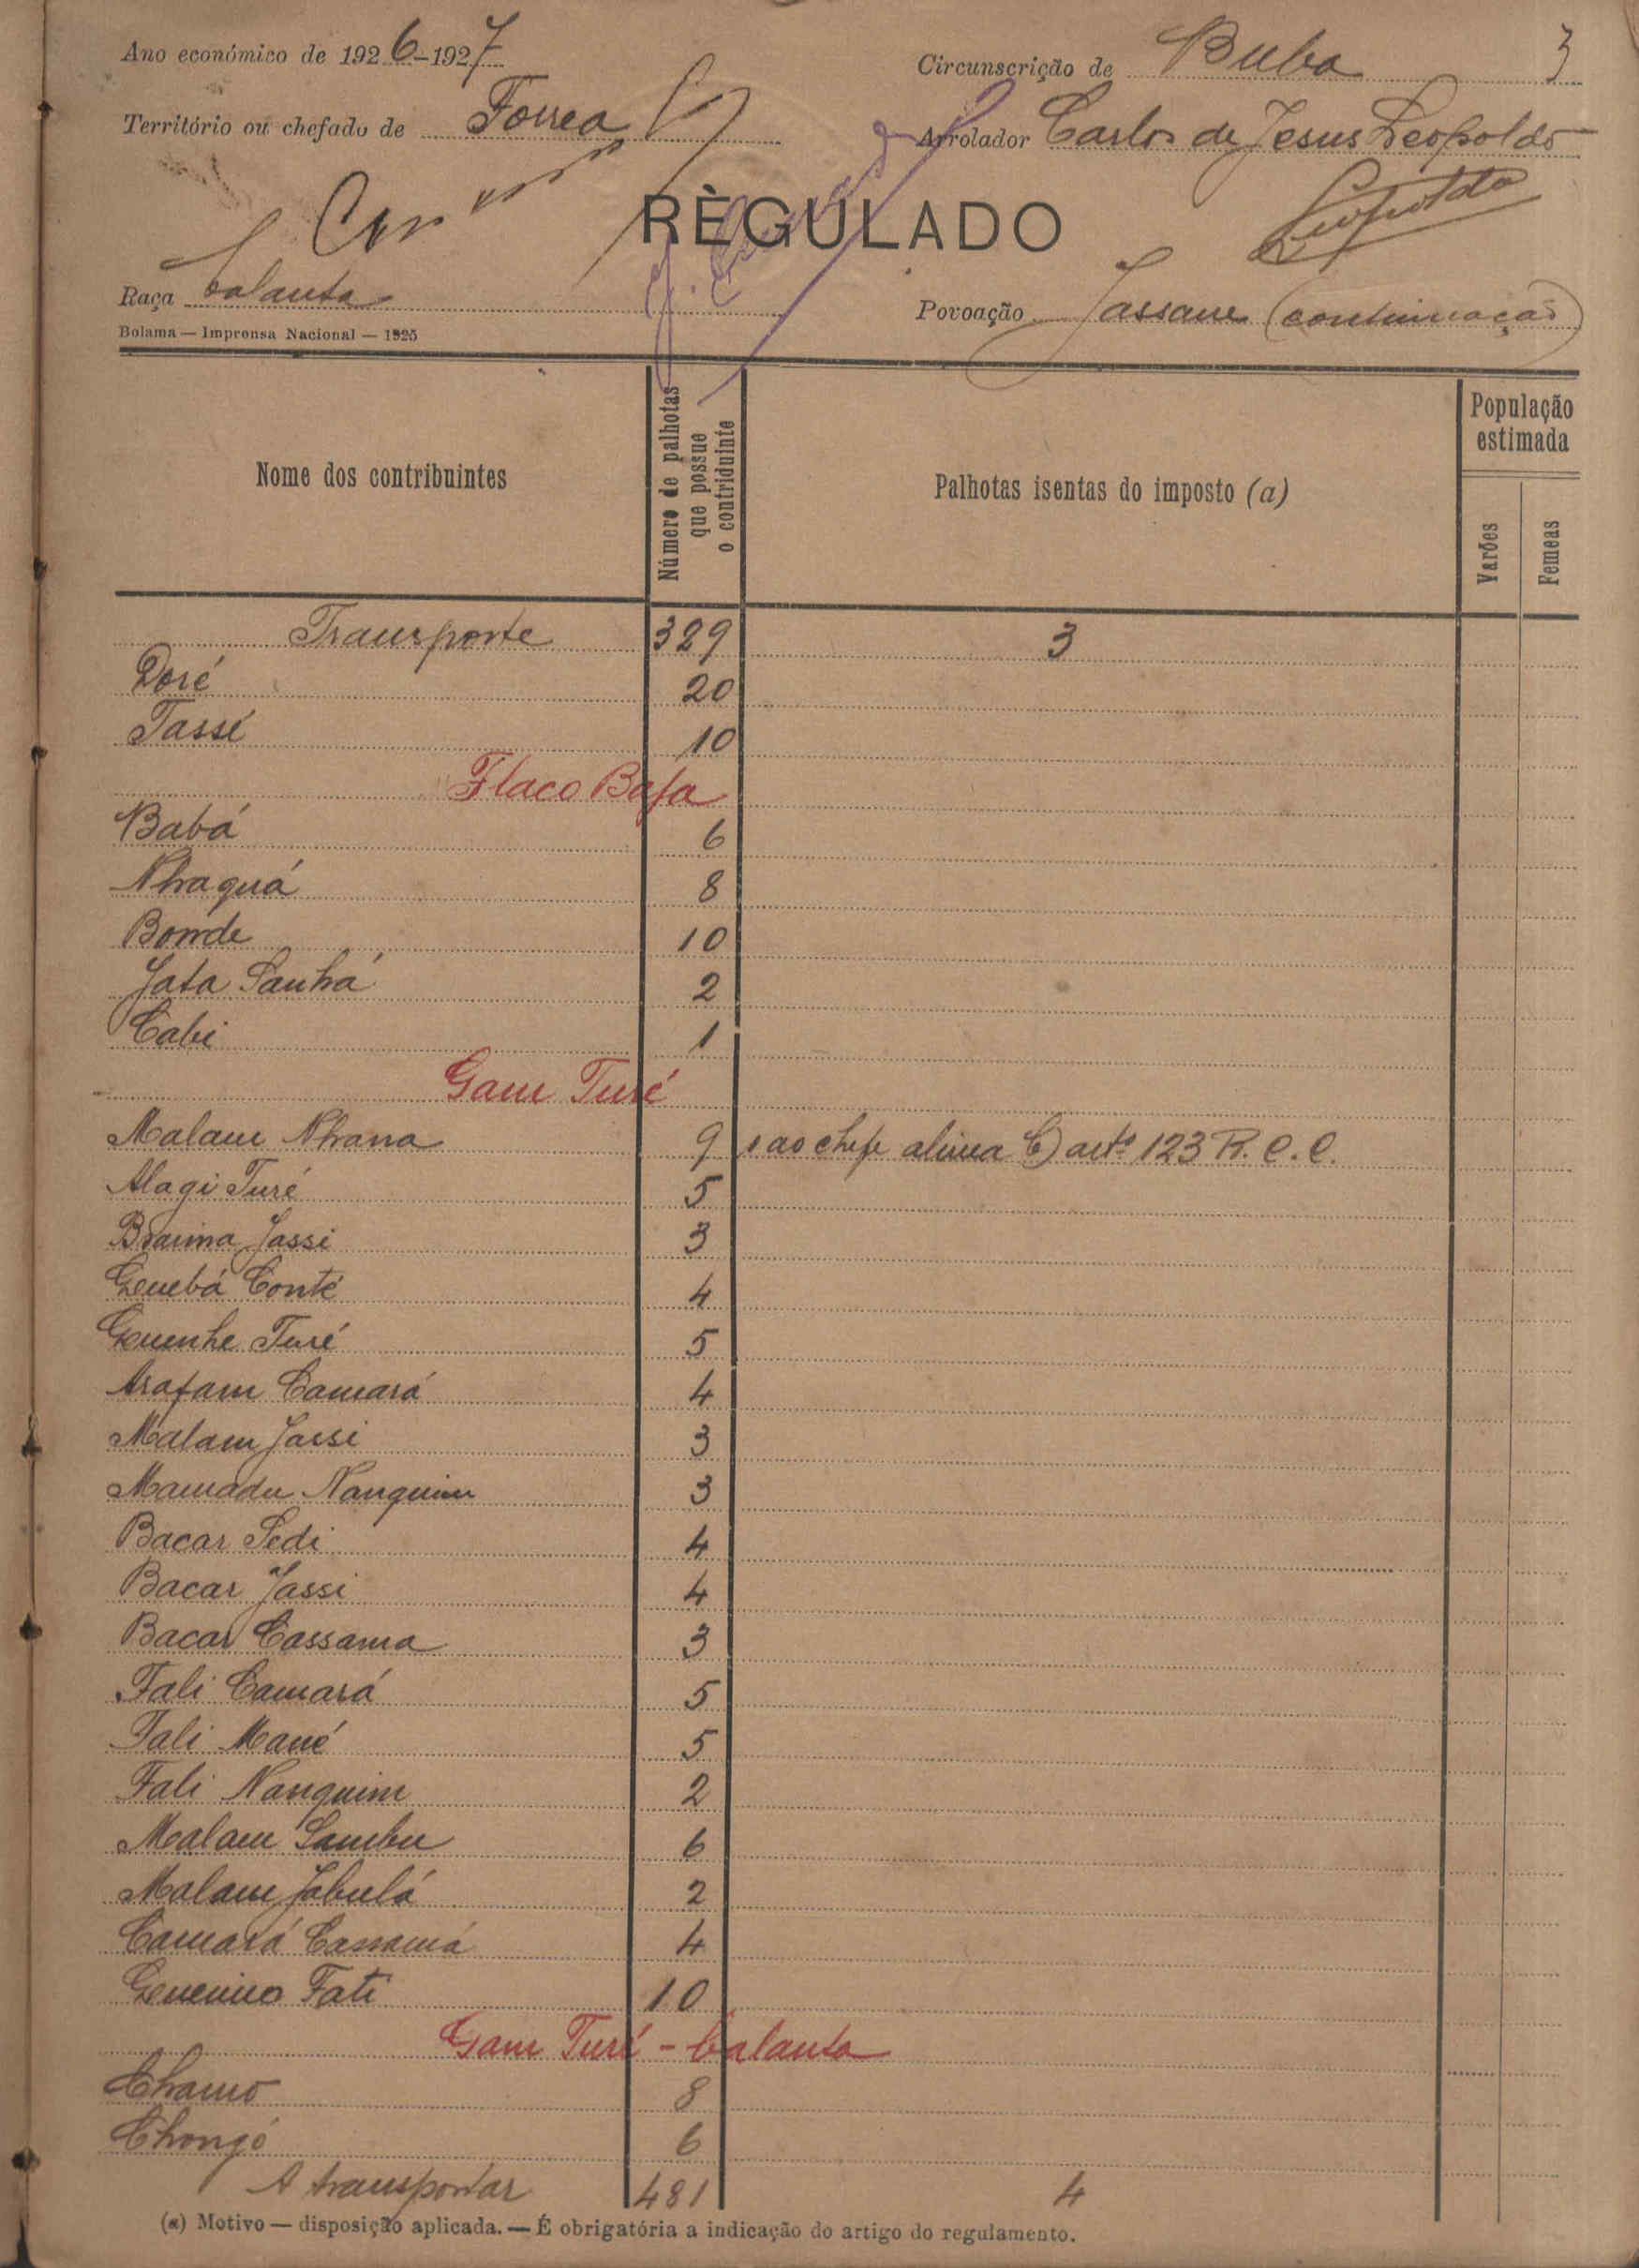 Ano económico de 1926-1927
Circunscrição de Buba
3
Território ou chefado de Forrea
Arrolador Carlos de Jesus Leopoldo
Leopoldo
REGULADO
Raça balanta
Povoação Jassane (continuação)
Bolama — Imprensa Nacional — 1925
Nome dos contribuintes
Número de palhotas que possue o contriduinte
Palhotas isentas do imposto (a)
População estimada
Varões
Femeas
Transporte 329 3
Doré 20
Tassé 10
Flaco Bafa
Babá 6
Nhaguá 8
Bomde 10
Jata Sanhá 2
Cabi 1
Gam Turé
Malam Nhana 9 1 ao chefe alinea C) artº 123 R. C. C.
Alagi Turé 5
Braima Jassi 3
Quebá Conté 4
Quenhe Turé 5
Arafam Camará 4
Malam Jassi 3
Mamadu Nanquim 3
Bacar Sedi 4
Bacar Jassi 4
Bacar Cassama 3
Fali Camará 5
Fali Mané 5
Fali Nanquim 2
Malam Sambu 6
Malam Jabulá 2
Camará Cassamá 4
Fati 10
Gam Turé - balanta
Chamo 8
Chongó 6
A transportar 481 4
(a) Motivo — disposição aplicada. — É obrigatória a indicação do artigo do regulamento.